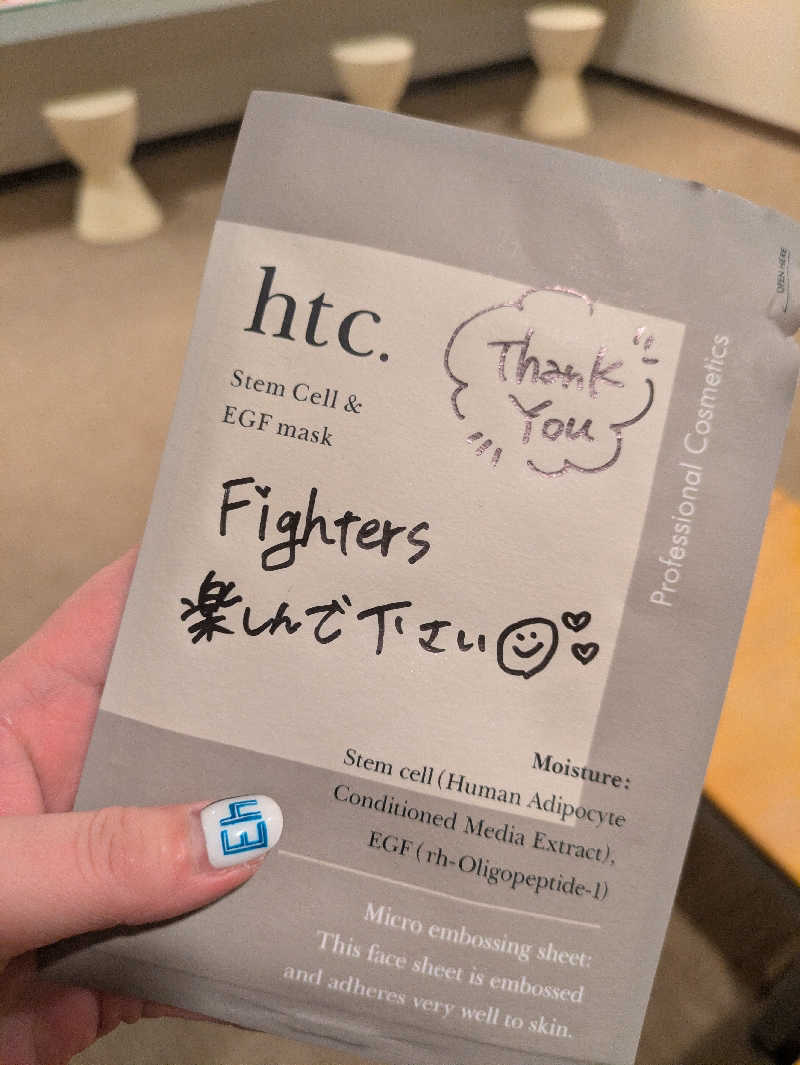 OPEN HERE
htc.
Thank
You
Stem Cell &
EGF mask
Professional Cosmetics
Fighters
楽しんで下さい
Moisture:
Stem cell (Human Adipocyte
Conditioned Media Extract),
EGF ( rh-Oligopeptide-1)
Eh
Micro embossing sheet:
This face sheet is embossed
and adheres very well to skin.